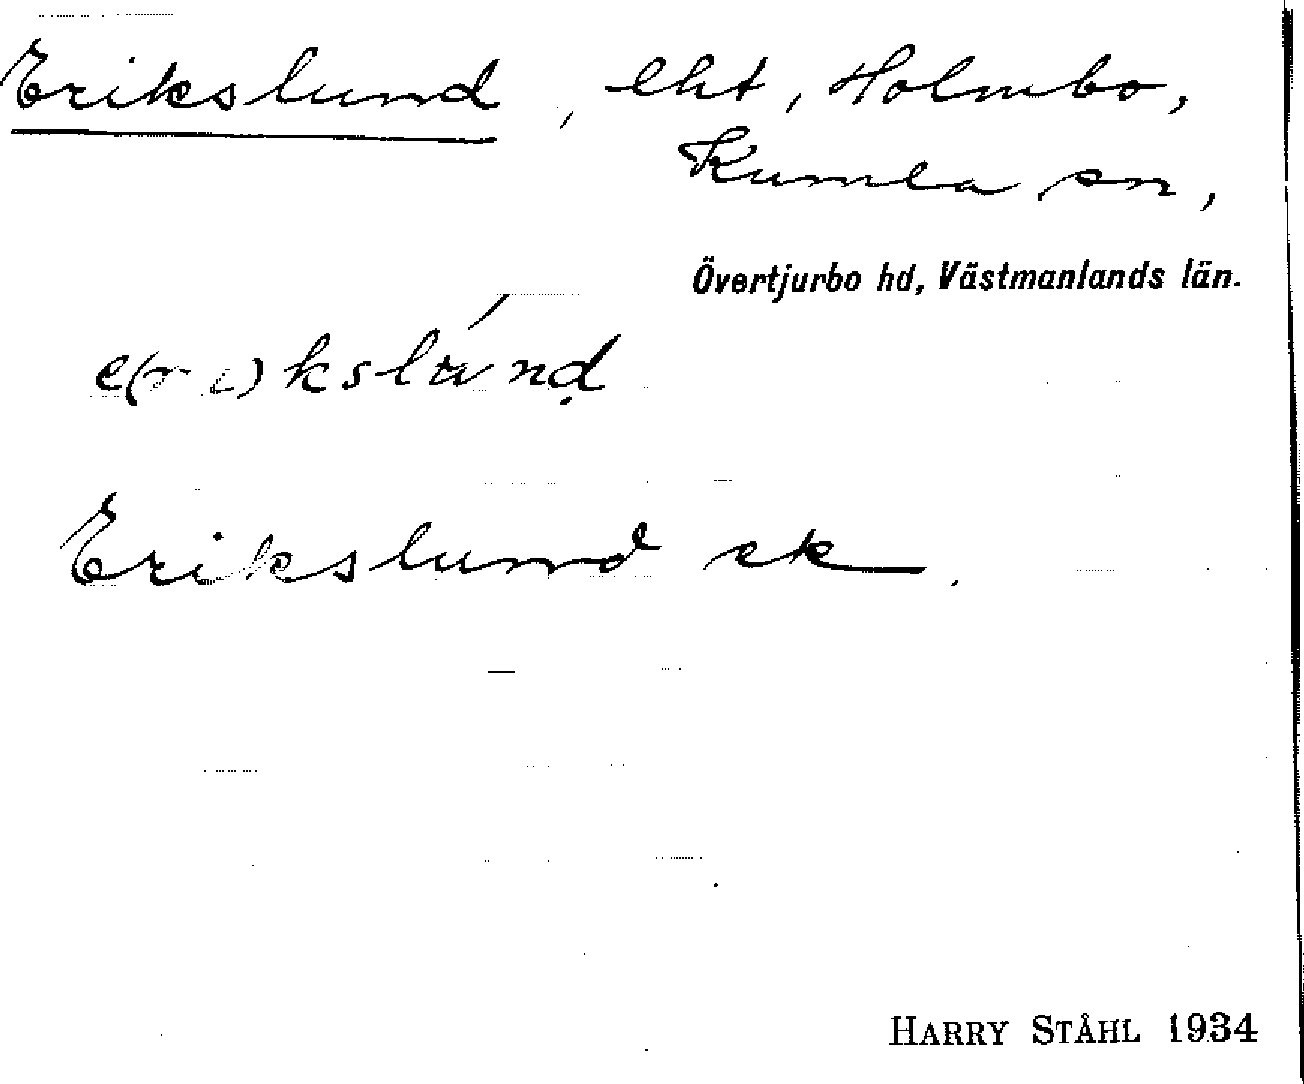 Erikslund, lht, Holmbo,
Kumla sn,
Övertjurbo hd, Västmanlands län.
e(ri)kslund
Erikslund ek.
HARRY STÅHL 1934